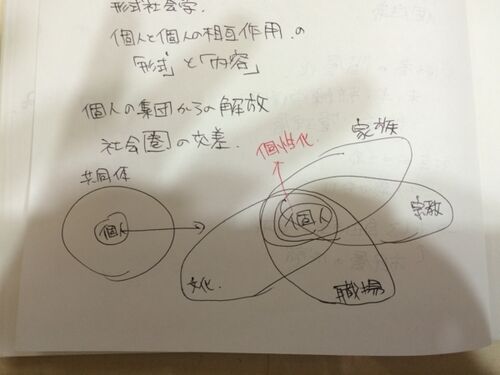 形式社会学.
個人と個人の相互作用の
「形式」と「内容」
個人の集団からの解放
社会圏の交差.
個性化
家族
共同体
個人
個人
宗教
文化.
職場